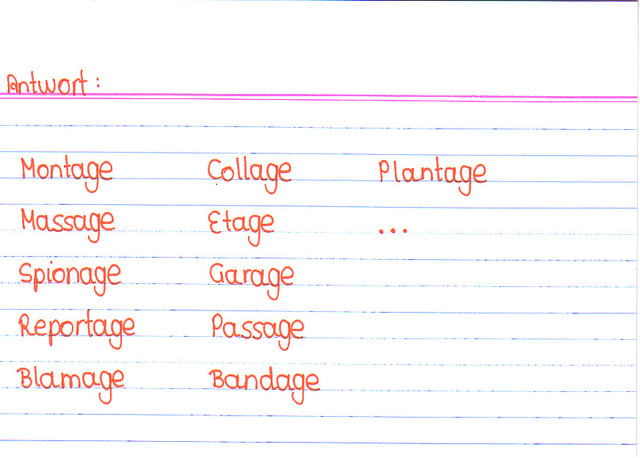 Antwort:
Montage Collage Plantage
Massage Etage ...
Spionage Garage
Reportage Passage
Blamage Bandage